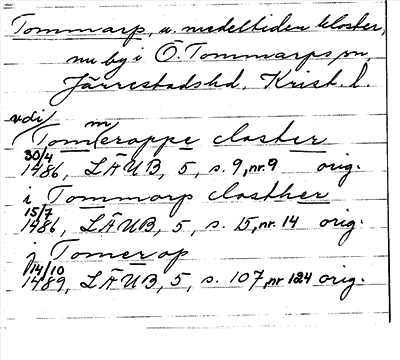 Tommarp, u. medeltiden kloster,
nu by i Ö. Tommarps sn,
Järrestads hd, Krist. l.
vdi Tommerappe closter
30/4 1486, LÄUB, 5, s. 9, nr. 9 orig.
i Tommarp closther
15/7 1486, LÄUB, 5, s. 15, nr. 14 orig.
j Tomerop
14/10 1489, LÄUB, 5, s. 107, nr 124 orig.